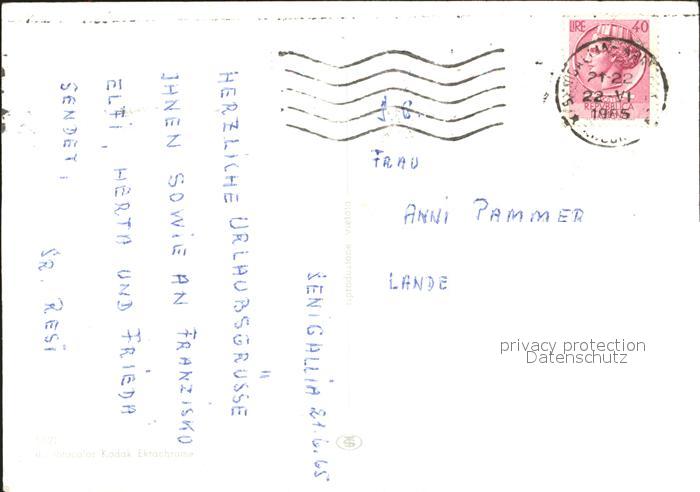 SENIGALLIA 21.6.65
HERZLICHE URLAUBSGRÜSSE
IHNEN SOWIE AN FRANZISKO
ELFI, HERTA UND FRIEDA
SENDET,
SR. RESI
LIRE 40
21-22
22-VI
1965
FRAU
ANNI PAMMER
LANDE
privacy protection
Datenschutz
riproduzione vietata
Kodak Ektachrome